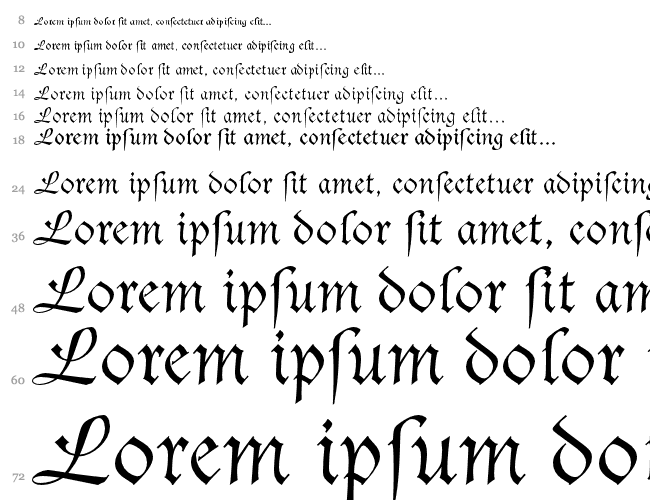 8 Lorem ipſum dolor ſit amet, conſectetuer adipiſcing elit...
10 Lorem ipſum dolor ſit amet, conſectetuer adipiſcing elit...
12 Lorem ipſum dolor ſit amet, conſectetuer adipiſcing elit...
14 Lorem ipſum dolor ſit amet, conſectetuer adipiſcing elit...
16 Lorem ipſum dolor ſit amet, conſectetuer adipiſcing elit...
18 Lorem ipſum dolor ſit amet, conſectetuer adipiſcing elit...
24 Lorem ipſum dolor ſit amet, conſectetuer adipiſcing
36 Lorem ipſum dolor ſit amet, conſ
48 Lorem ipſum dolor ſit am
60 Lorem ipſum dolor
72 Lorem ipſum do